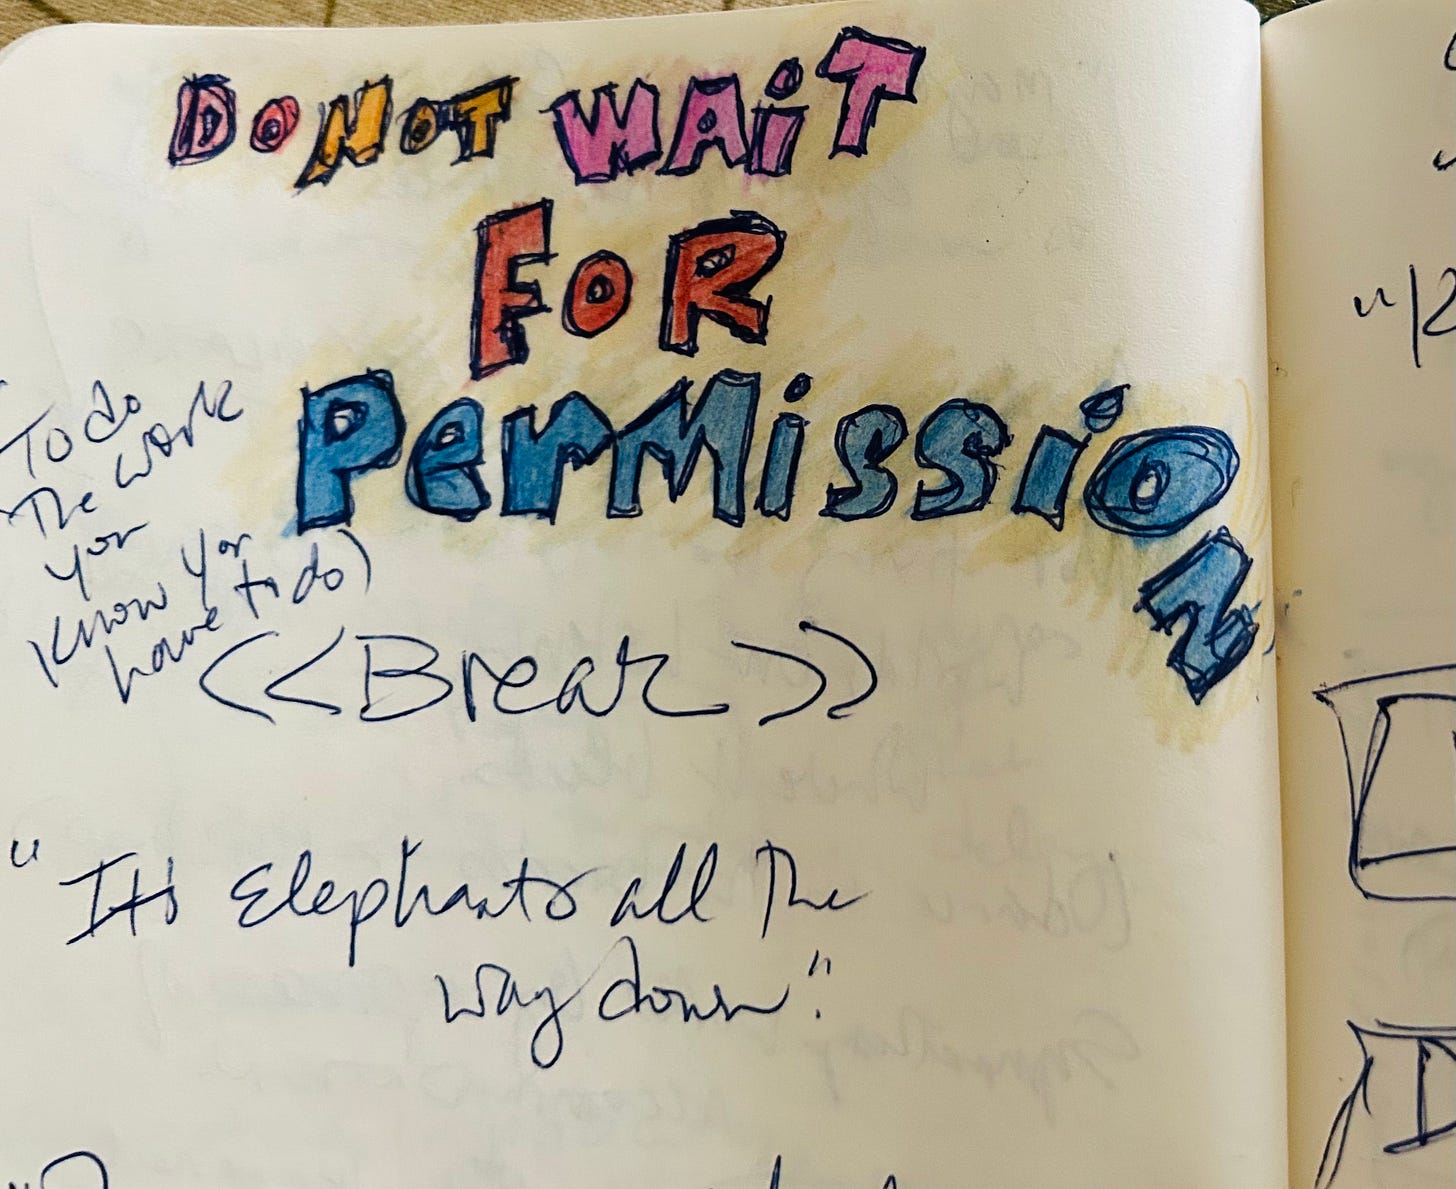 DO NOT WAiT
FOR
PerMissiON
(To do
the work
you
know you
have to do)
<<Break>>
"It's Elephants all the
way down".